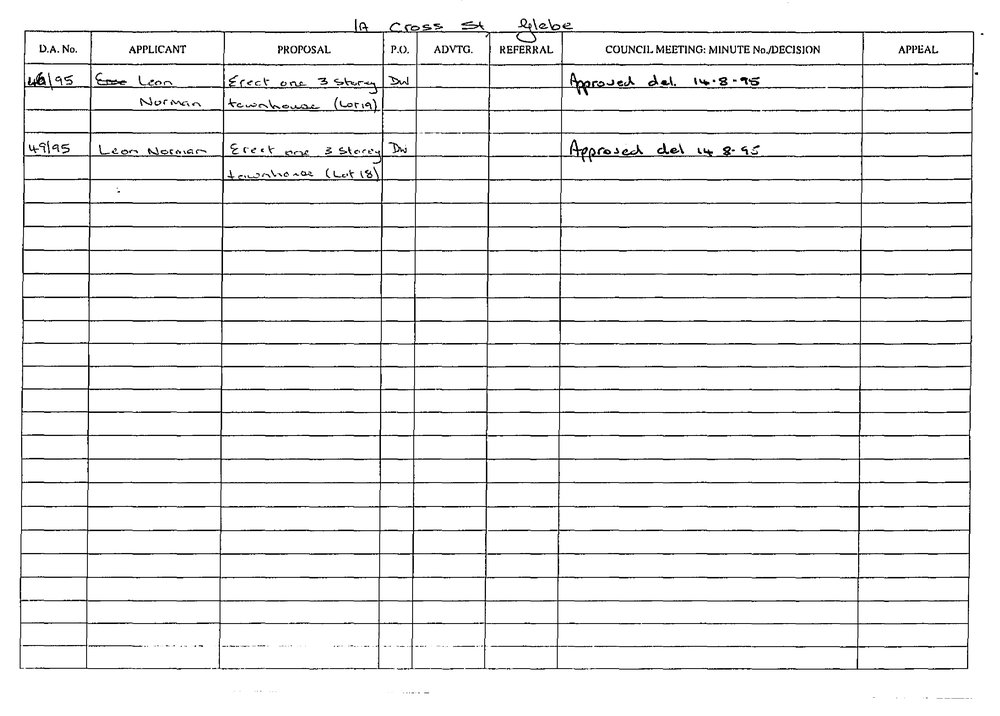 1A Cross St Glebe
D.A. No. APPLICANT PROPOSAL P.O. ADVTG. REFERRAL COUNCIL MEETING: MINUTE No./DECISION APPEAL
/95 Leon Erect one 3 Storey DW Approved del. 14-8-95
Norman townhouse (Lot 19)
49/95 Leon Norman Erect one 3 Storey DW Approved del 14 8-95
townhouse (Lot 18)